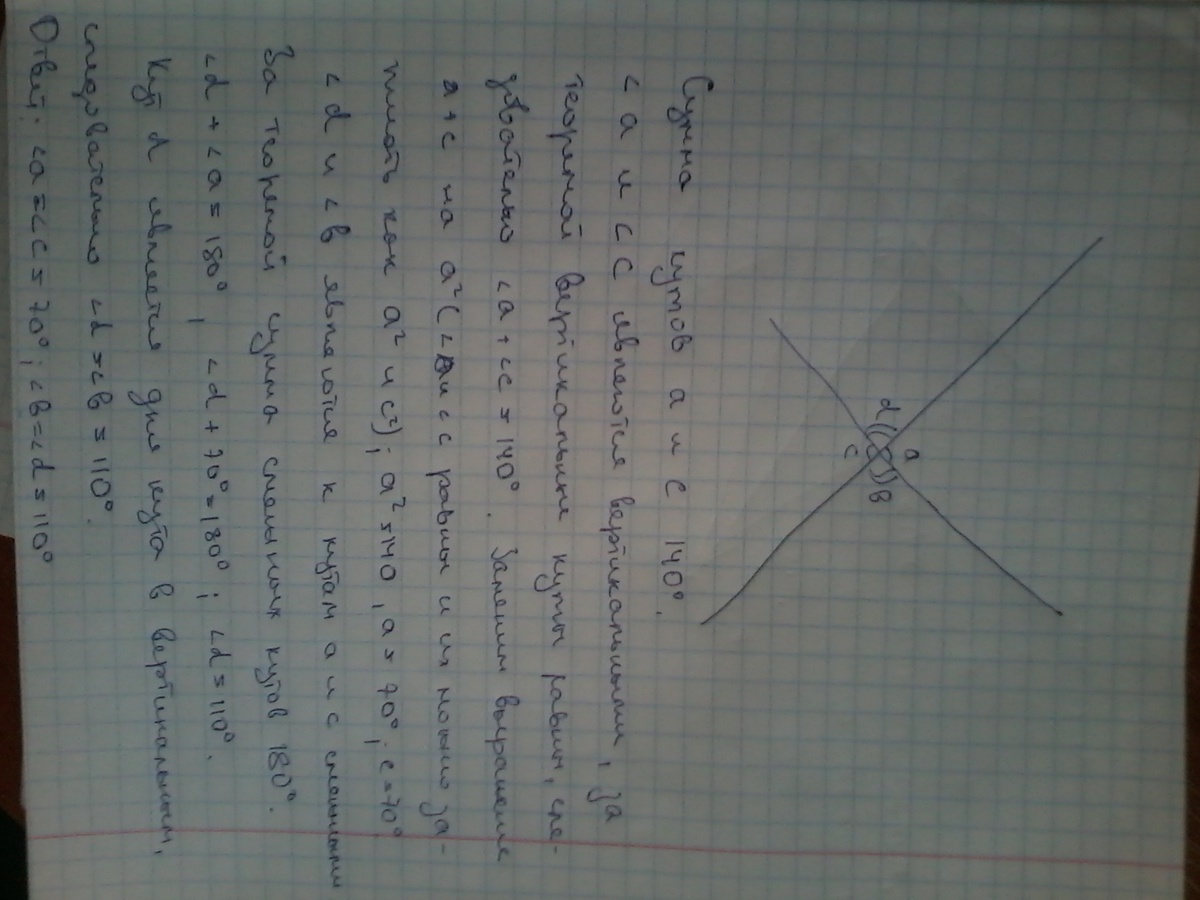 d a
c в
Сумма кутов а и с 140°.
<а и <с являются вертикальными, за
теоремой вертикальные куты равны, сле-
довательно <а + <с = 140°. Заменим выражение
а+с на а² (<а и <с равны и их можно за-
писать как а² и с²); а²=140, а=70°, с=70°
<d и <в являются к кутам а и с смежными
За теоремой сумма смежных кутов 180°.
<d + <а = 180°, <d + 70°=180°; <d=110°.
Кут d является для кута в вертикальным,
следовательно <d=<в=110°.
Ответ: <а=<с=70°; <в=<d=110°